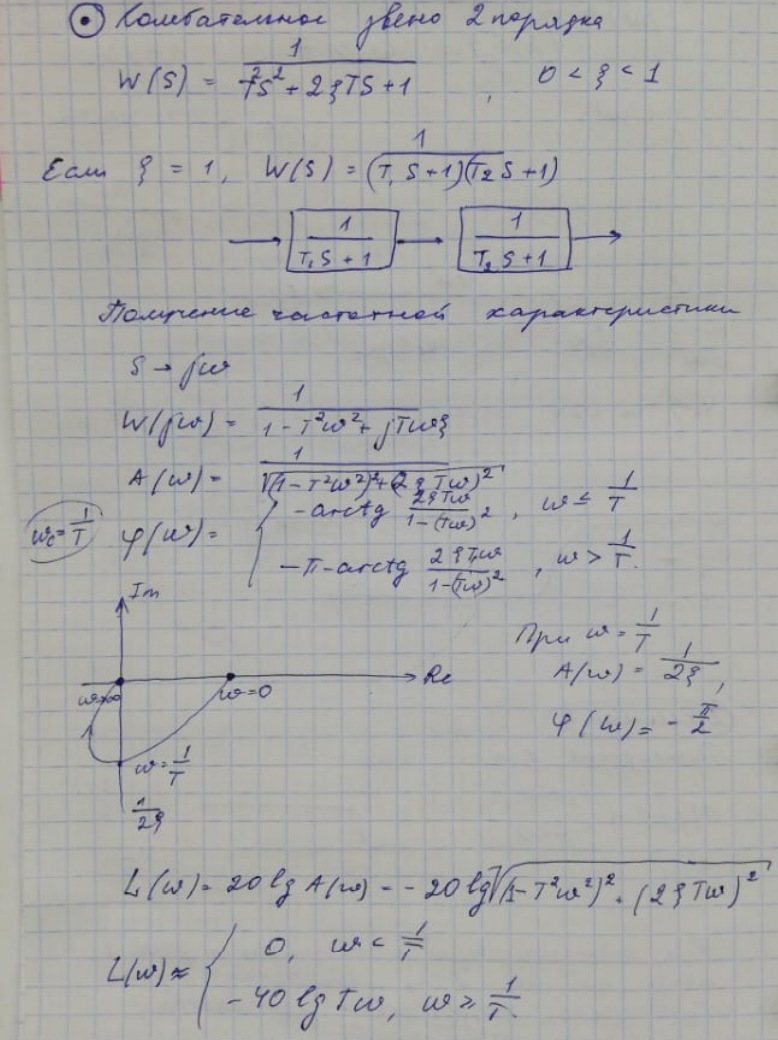 ⊙ Колебательное звено 2 порядка
W(S) = 1/(T²S² + 2ξTS + 1), 0 < ξ < 1
Если ξ = 1, W(S) = 1/((T₁S + 1)(T₂S + 1))
→ [1/(T₁S + 1)] → [1/(T₂S + 1)] →
Получение частотной характеристики
S → jω
W(jω) = 1/(1 - T²ω² + jTωξ)
A(ω) = 1/√((1 - T²ω²)² + (2ξTω)²)
ω_c = 1/T
φ(ω) = { -arctg 2ξTω/(1 - (Tω)²), ω ≤ 1/T
-π - arctg 2ξTω/(1 - (Tω)²), ω > 1/T.
Im
При ω = 1/T
A(ω) = 1/2ξ,
φ(ω) = -π/2
Re
ω→∞
ω=0
ω = 1/T
1/2ξ
L(ω) = 20 lg A(ω) = -20 lg √((1 - T²ω²)² + (2ξTω)²)
L(ω) ≈ { 0, ω < 1/T
-40 lg Tω, ω ≥ 1/T.